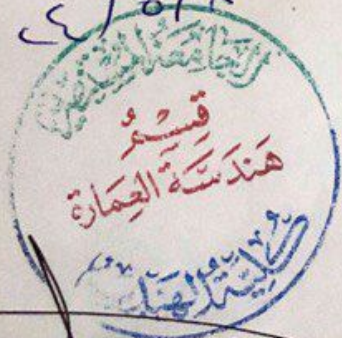 الجامعة المستنصرية
قسم
هندسة العمارة
كلية الهندسة